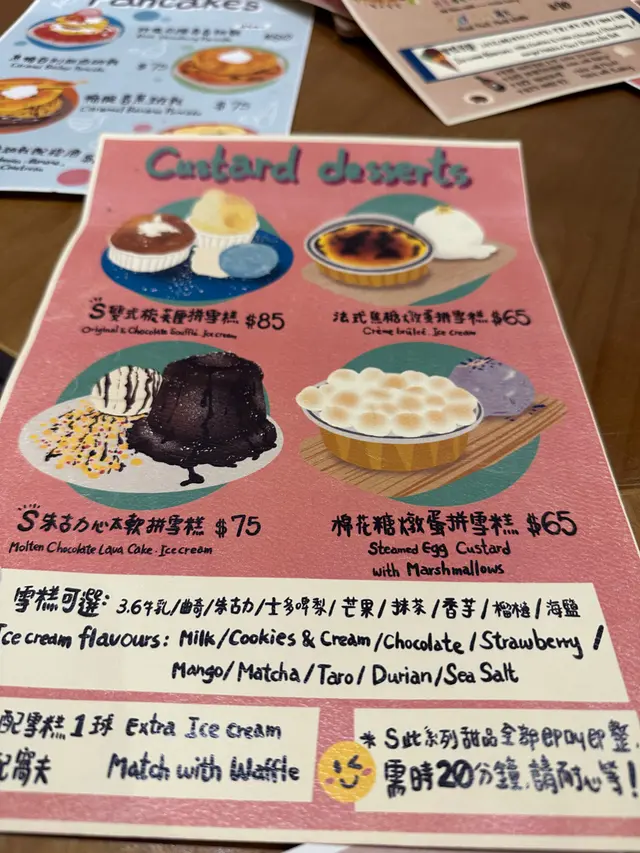 Pancakes
$75
$75
Caramel Banana Pancake
Custard desserts
S雙式梳芙厘拼雪糕 $85
Original & Chocolate Soufflé. Ice cream
法式焦糖燉蛋拼雪糕 $65
Crème brûleé. Ice cream
S朱古力心太軟拼雪糕 $75
Molten Chocolate Lava Cake. Ice cream
棉花糖燉蛋拼雪糕 $65
Steamed Egg Custard
with Marshmallows
雪糕可選: 3.6牛乳/曲奇/朱古力/士多啤梨/芒果/抹茶/香芋/榴槤/海鹽
Ice cream flavours: Milk/Cookies & Cream/Chocolate/Strawberry/
Mango/Matcha/Taro/Durian/Sea Salt
配雪糕1球 Extra Ice cream
配窩夫 Match with Waffle
* S此系列甜品全部
需時20分鐘,請耐心等!